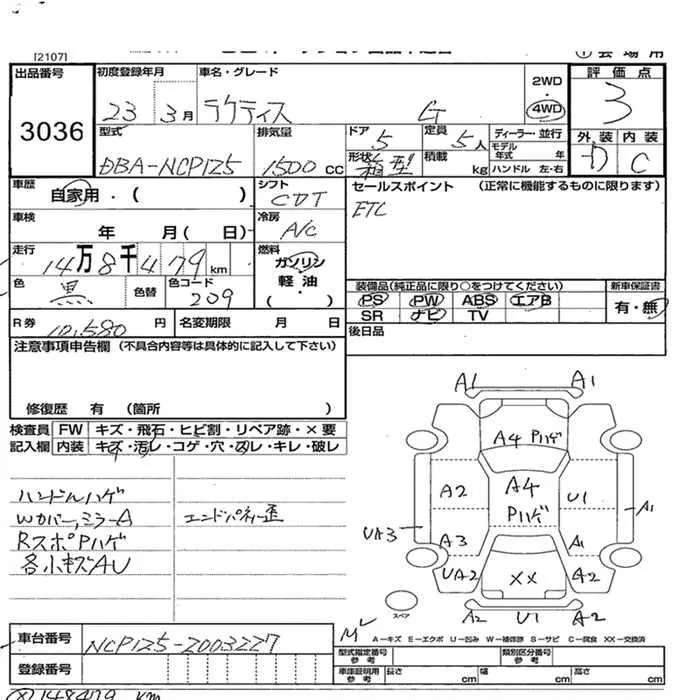 [2107]
① 会場用
出品番号
3036
初度登録年月
23 3月
車名・グレード
ラクティス G
2WD
・
4WD
評価点
3
型式
DBA-NCP125
排気量
1500 CC
ドア
5
定員
5人
ディーラー・並行
モデル
年式 年
ハンドル 左・右
形状
箱型
積載
kg
外装
D
内装
C
車歴
自家用・( )
シフト
CVT
セールスポイント (正常に機能するものに限ります)
ETC
車検
年 月( 日)
冷房
A/C
走行
14万8千479km
燃料
ガソリン
軽油
( )
色
黒
色替
色コード
209
装備品(純正品に限り○をつけてください)
PS PW ABS エアB
SR ナビ TV
新車保証書
有・無
R券
10,580円
名変期限 月 日
後日品
注意事項申告欄 (不具合内容等は具体的に記入して下さい)
修復歴 有 (箇所 )
検査員
記入欄
FW キズ・飛石・ヒビ割・リペア跡・×要
内装 キズ・汚レ・コゲ・穴・スレ・キレ・破レ
ハンドルハゲ
Wカバー,ミラーA
RスポPハゲ
各小キズAU
エンドパネル歪
A1 A1
A4 Pハゲ
A2 A4 U1 A1
Pハゲ
UA3 A3 A1
UA2 XX A2
スペア
A2 U1 A2
A-キズ E-エクボ U-凹み W-補修跡 S-サビ C-腐食 XX-交換済
車台番号
NCP125-2003227
登録番号
型式指定番号
参考
類別区分番号
参考
車庫証明用
参考
長さ cm 幅 cm 高さ cm
148479 KM